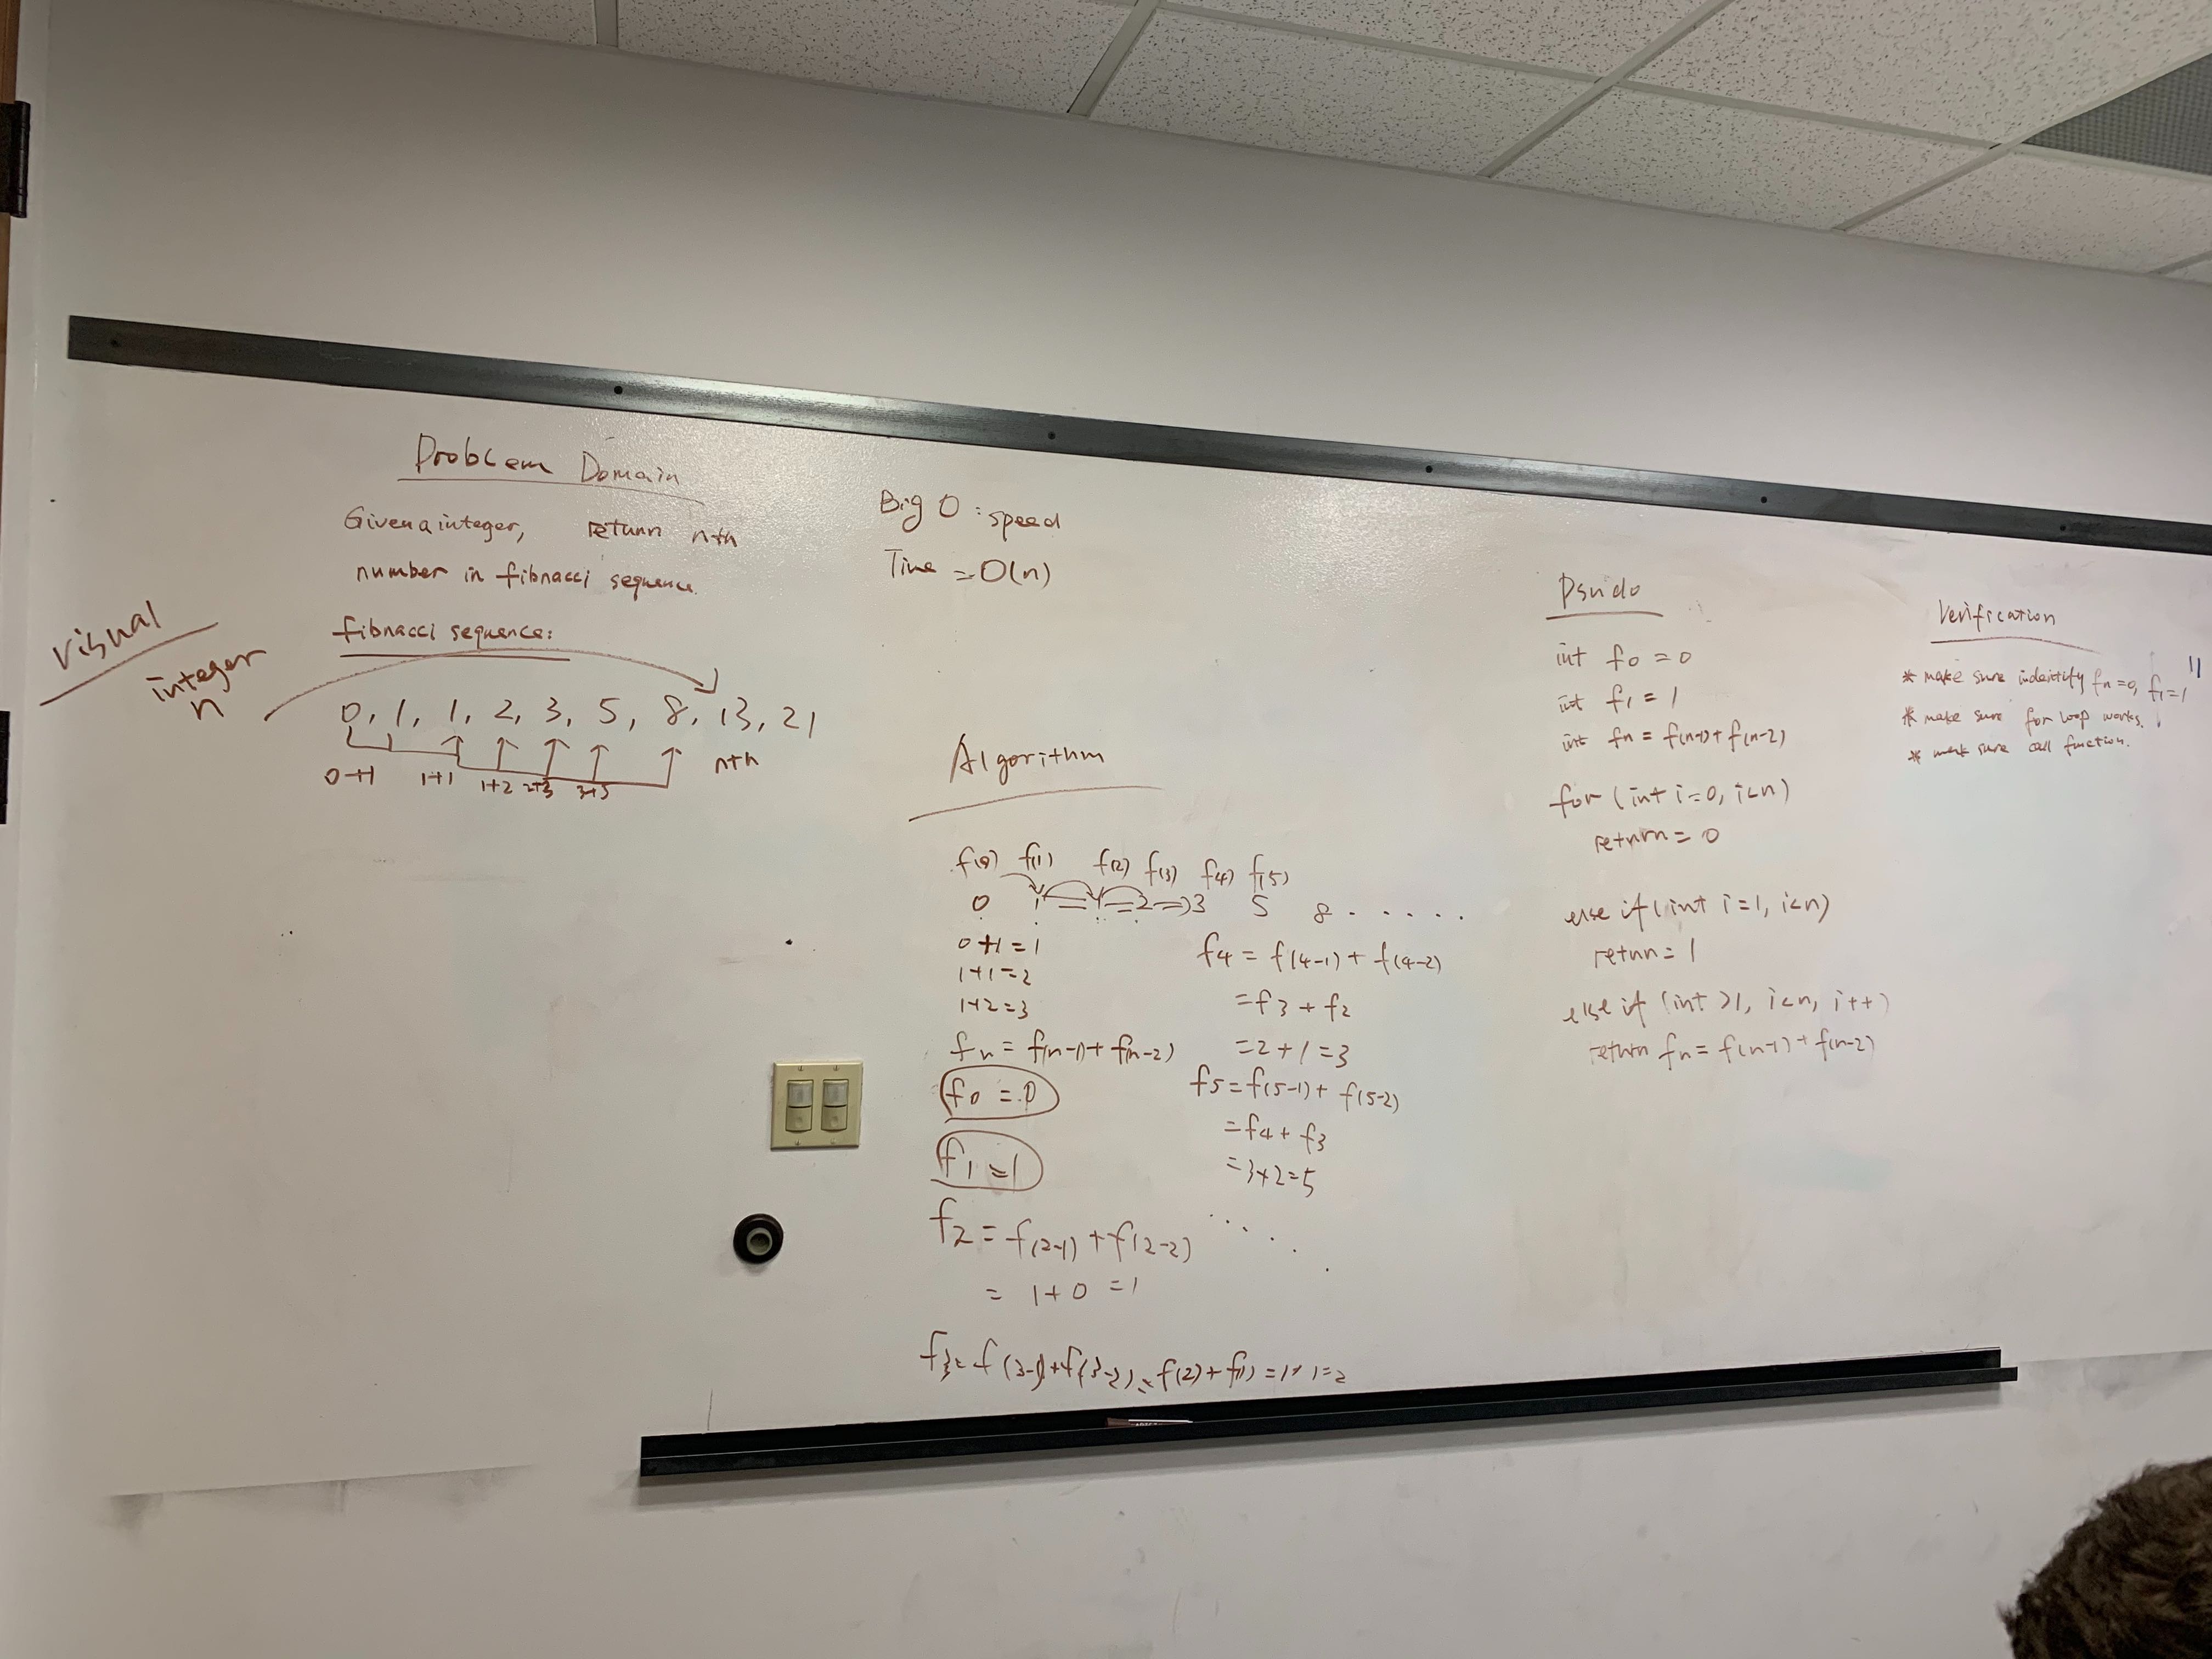 Problem Domain
Given a integer, return nth
number in fibnacci sequence.
Visual
integer
n
fibnacci sequence:
0, 1, 1, 2, 3, 5, 8, 13, 21
0+1 1+1 1+2 2+3 3+5 nth
Big O : speed
Time = O(n)
Algorithm
f(0) f(1) f(2) f(3) f(4) f(5)
0 1 = 1 = 2 => 3 5 8 . . . . .
0+1=1
1+1=2
1+2=3
fn = f(n-1) + f(n-2)
f0 = 0
f1 = 1
f2 = f(2-1) + f(2-2)
= 1+0 = 1
f3 = f(3-1) + f(3-2) = f(2) + f(1) = 1+1=2
f4 = f(4-1) + f(4-2)
= f3 + f2
= 2+1=3
f5 = f(5-1) + f(5-2)
= f4 + f3
= 3+2=5
Psuido
int f0 = 0
int f1 = 1
int fn = f(n-1) + f(n-2)
for (int i=0, i<n)
return = 0
else if (int i=1, i<n)
return = 1
else if (int >1, i<n, i++)
return fn = f(n-1) + f(n-2)
Verification
* make sure indeitify fn=0, f1=1
* make sure for loop works.
* make sure call function.